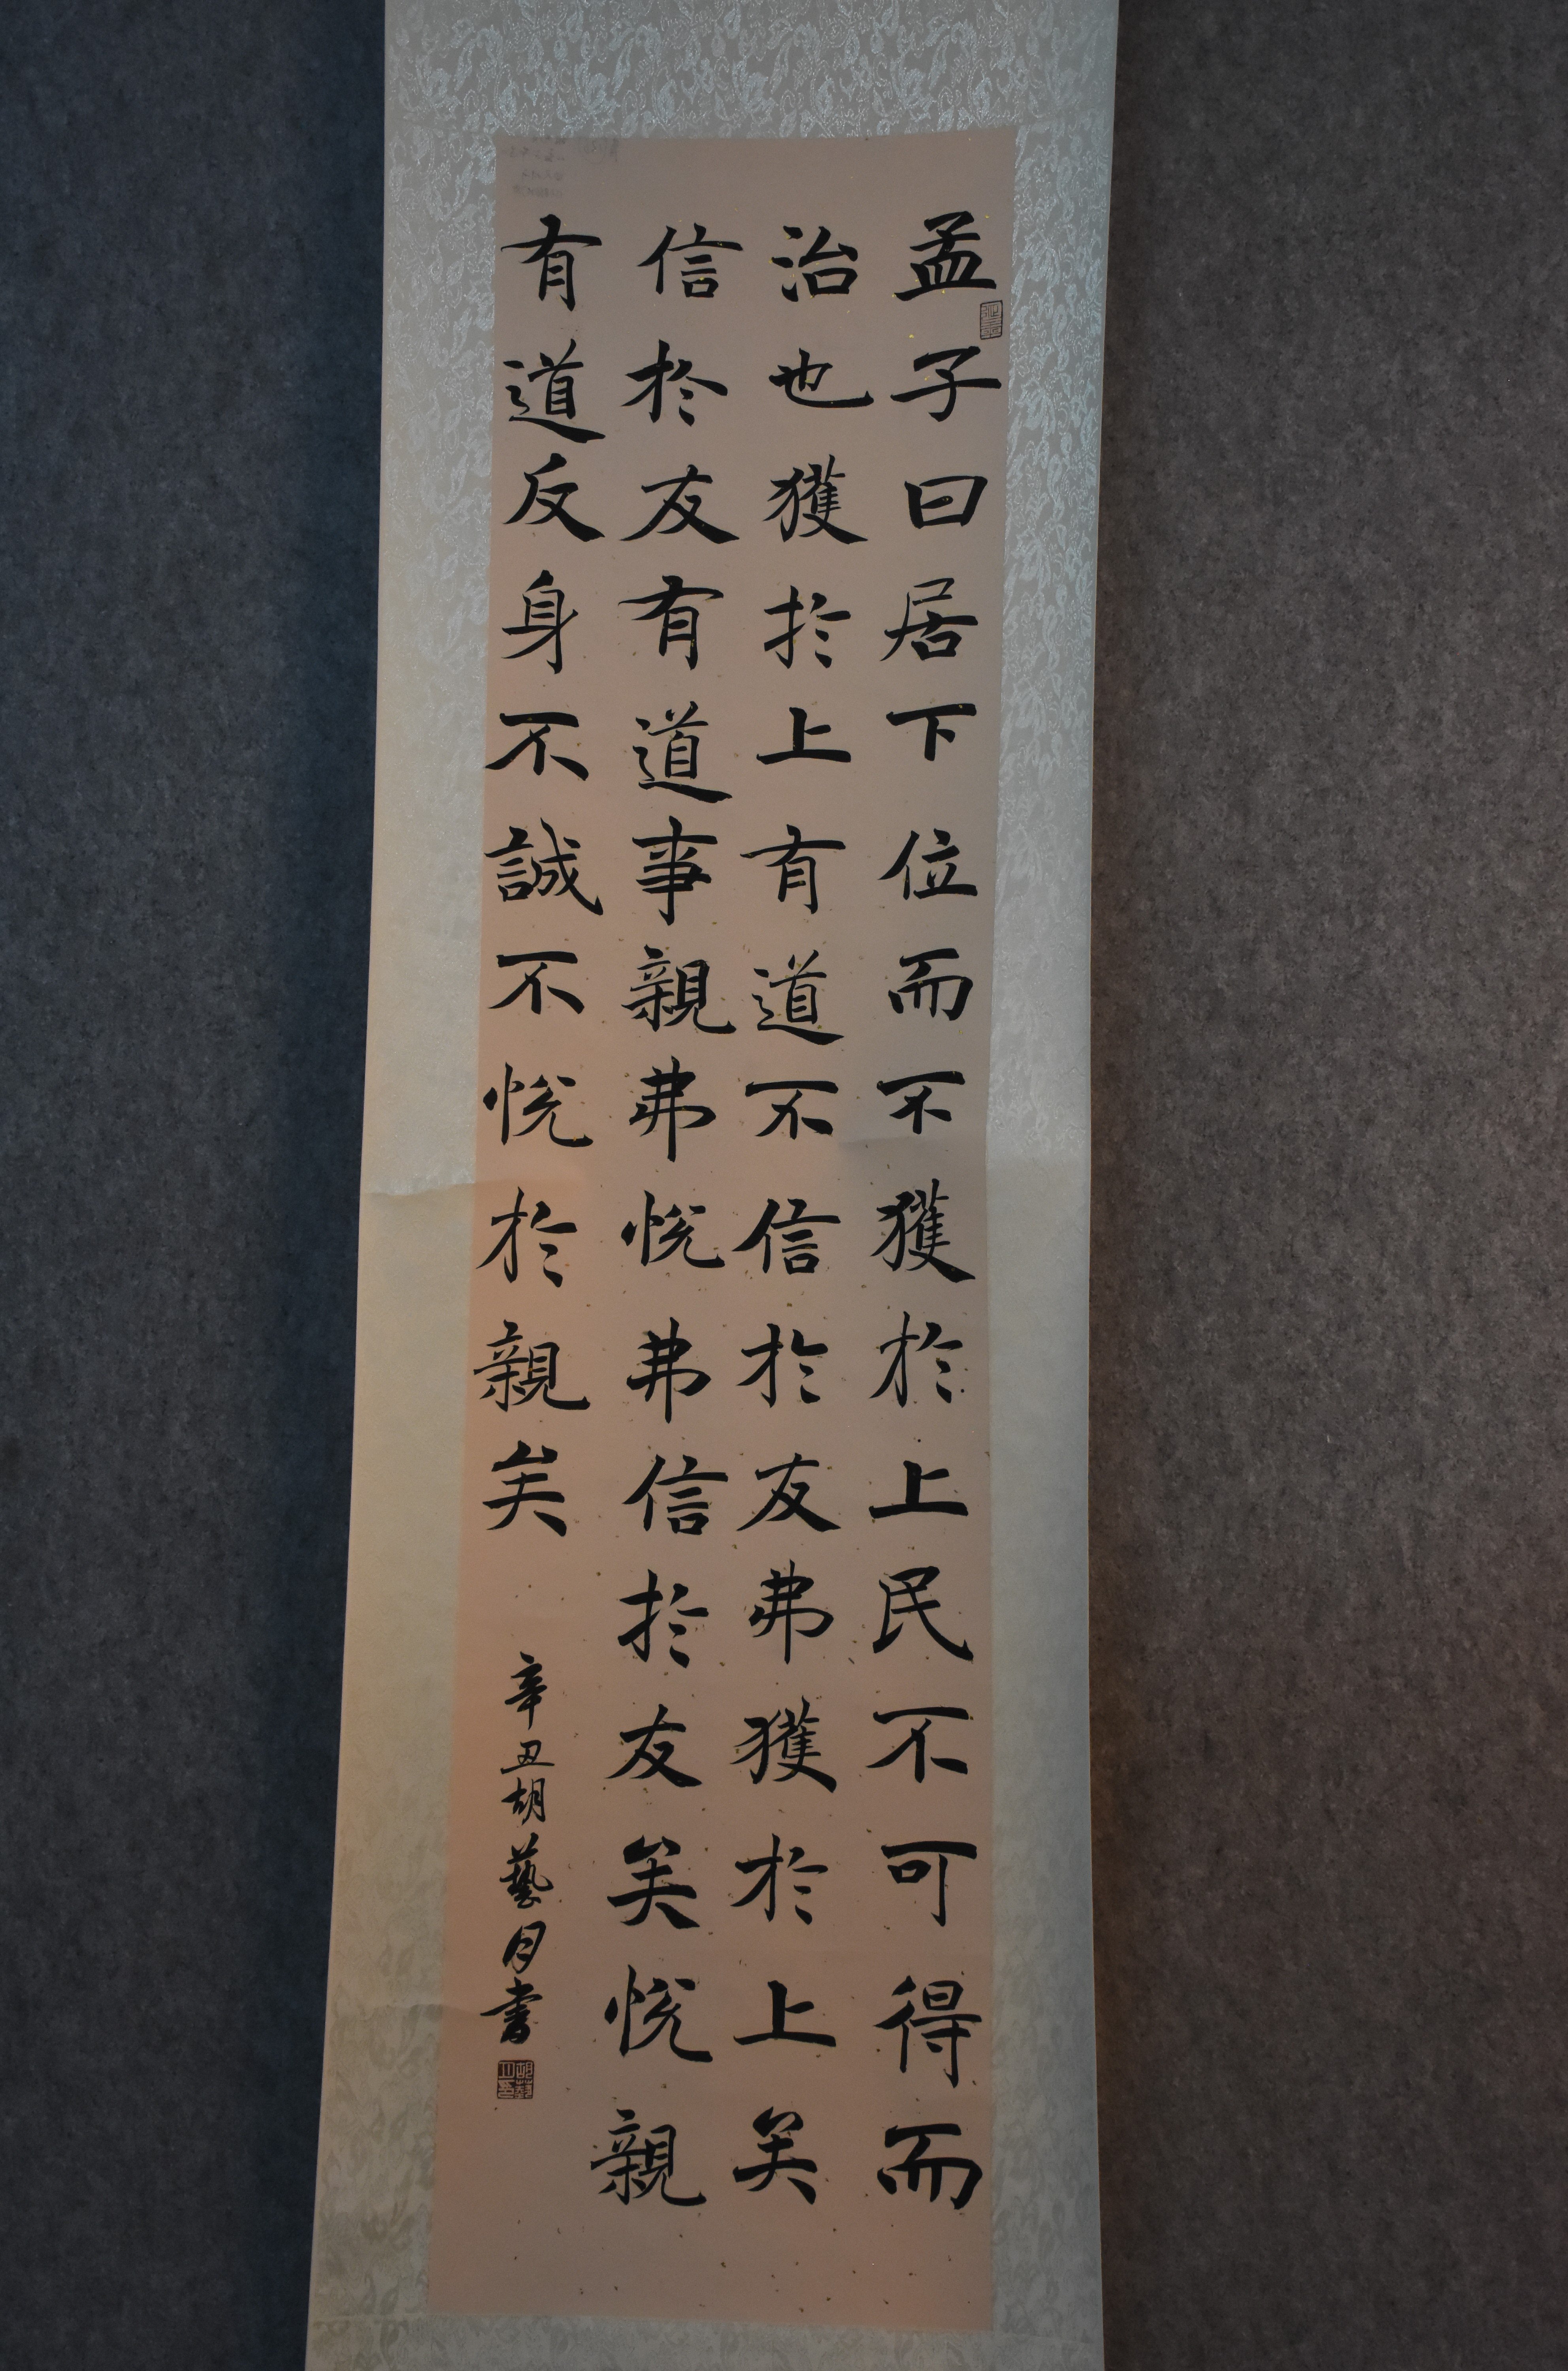 孟子曰居下位而不獲於上民不可得而
治也獲於上有道不信於友弗獲於上矣
信於友有道事親弗悅弗信於友矣悅親
有道反身不誠不悅於親矣
辛丑胡藝月書